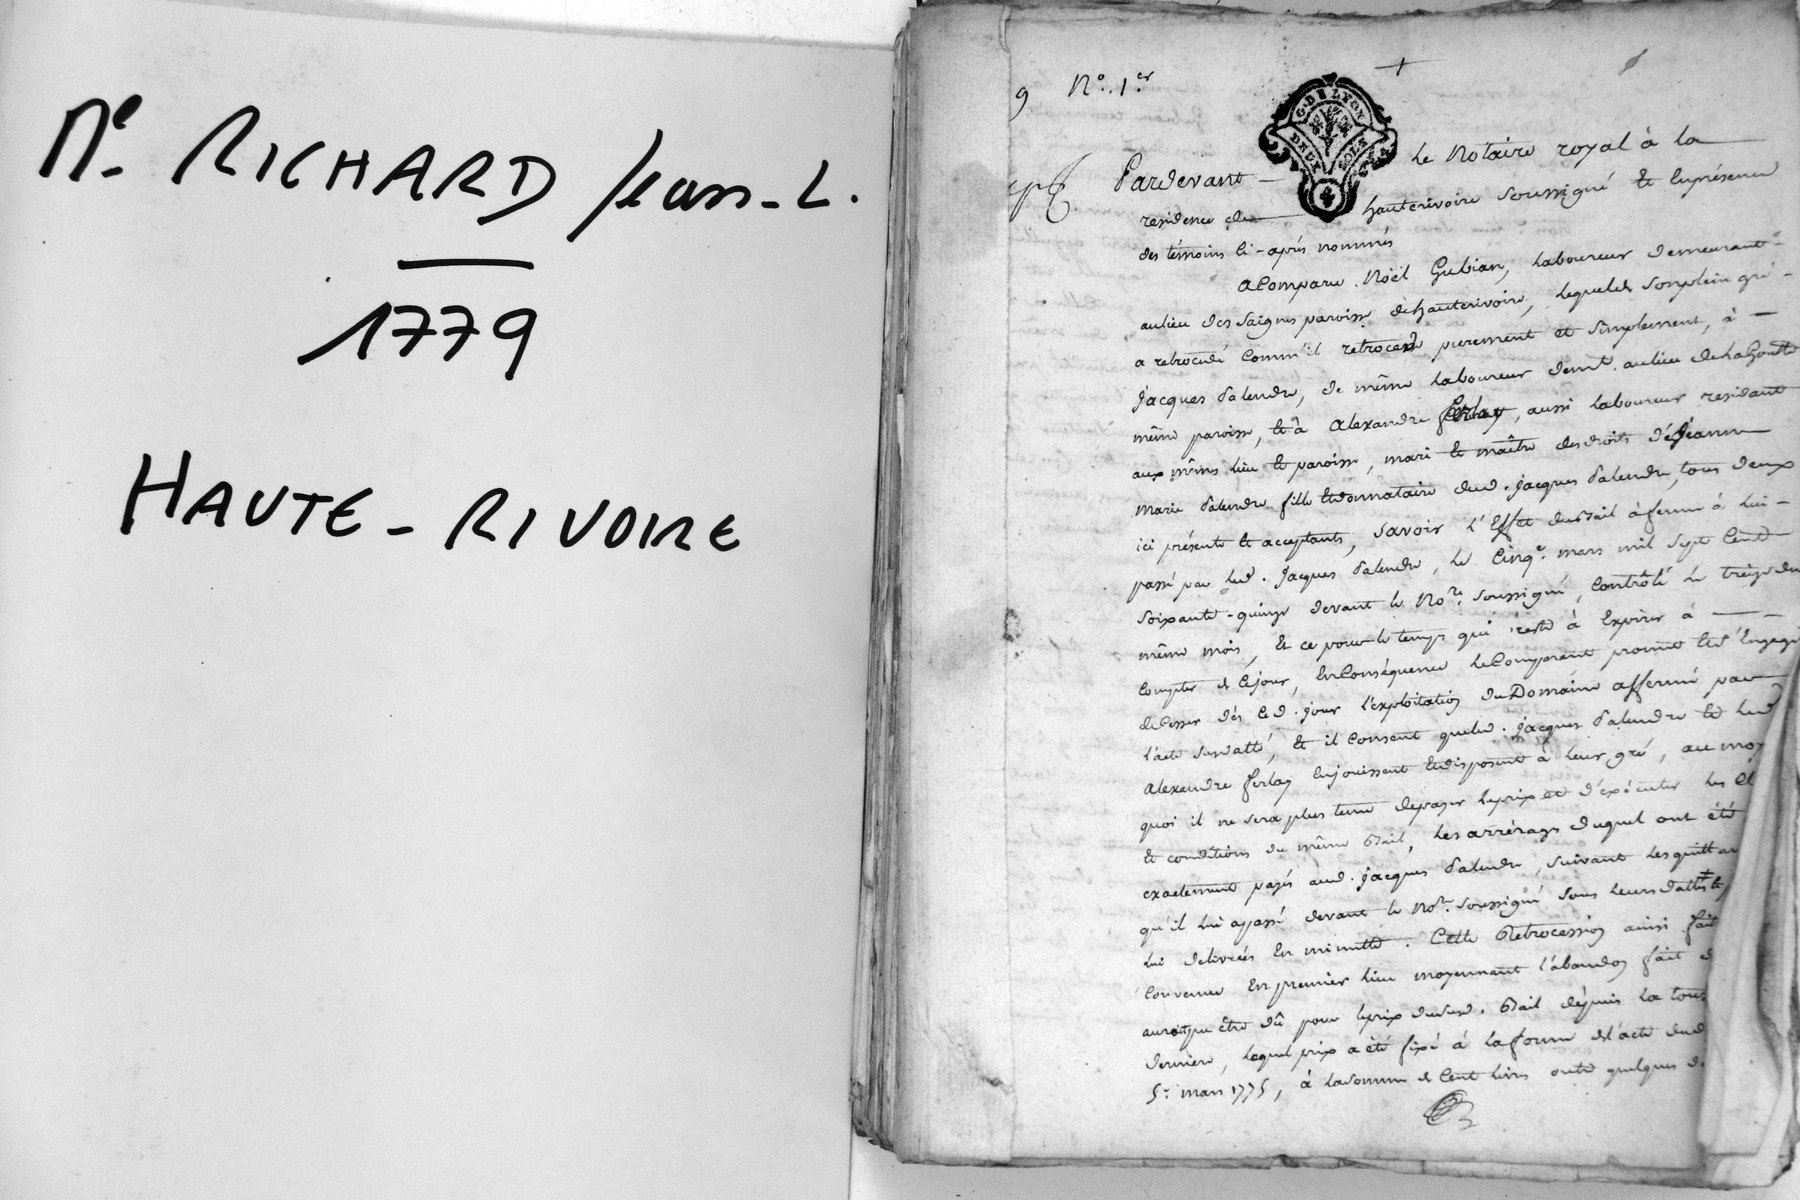 Me. RICHARD Jean-L.
1779
HAUTE-RIVOIRE
9 No. 1er
G. DE LYON
DEUX SOLS
Pardevant Le Notaire royal à la
residence de hauterivoire soussigné Et Enprésence
des témoins Ci-après nommés
A Comparu Noël Gubian, Laboureur demeurant
aulieu des Saignes paroisse de hauterivoire, Lequel de sonplein gré
a retrocedé Comm'il retrocede purement et simplement, à
Jacques Palendre, de même Laboureur demt. aulieu de LaGoutte
même paroisse, Et à Alexandre ferlay, aussi Laboureur residant
aux mêmes Lieu Et paroisse, mari Et maître des droits de Jeanne
marie Palendre fille Et donnataire dud. Jacques Palendre, tous deux
ici présents Et acceptants, Savoir L'Effet du Bail à ferme à Lui
passé par Led. Jacques Palendre, Le Cinqe. mars mil Sept Cent
Soixante-quinze devant Le Nore. soussigné, Contrôlé Le treize du
même mois, Et ce pour Le temps qui reste à Expirer à
Compter de Cejour, En Conséquence Le Comparent promet Et s'Engage
de Cesser dès Ced. jour l'exploitation du Domaine affermé par
l'acte susdatté, Et il Consent queled. Jacques Palendre Et Led
Alexandre ferlay Enjouissent Et disposent à Leur gré, au moy
quoi il ne sera plus tenu depayer Leprix et d'éxécuter Les Cl
Et conditions du même Bail, Les arrérages duquel ont été
exactement payés aud. Jacques Palendre, suivant Les quittan
qu'il Lui apassé devant Le Nore. soussigné sous Leurs dattes Et
Lui delivrées En minutte. Cette Retrocession ainsi fait
Convenue En premier Lieu moyennant l'abandon fait d
auroitpu être dû pour Leprix dususd. Bail depuis La tous
derniere, Lequel prix a été fixé à Laforme de l'acte dud
5e. mars 1775, à Lasomme de Cent Livres outre quelques d